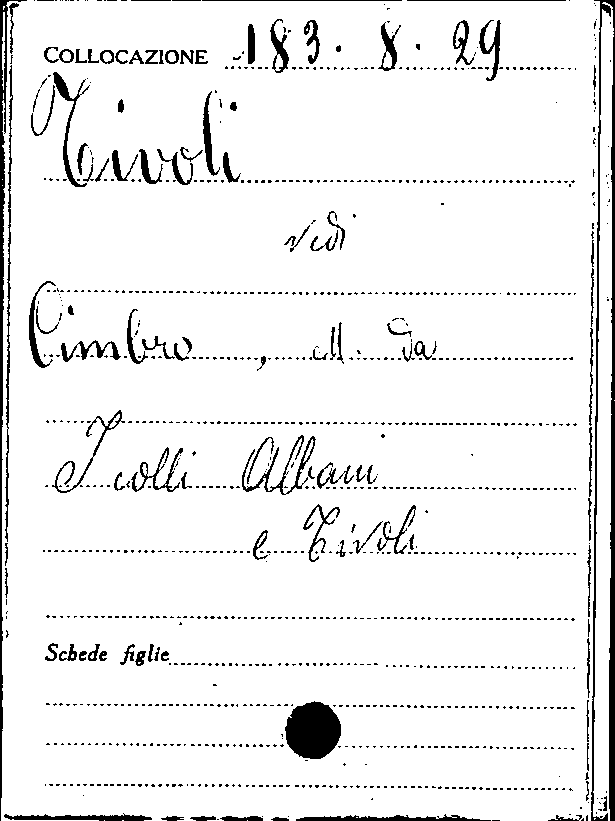 COLLOCAZIONE 183. 8. 29
Tivoli
vedi
Cimbro, M. da
I colli Albani
e Tivoli
Schede figlie